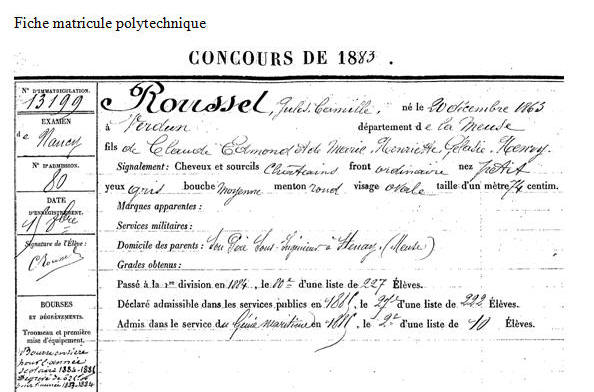 Fiche matricule polytechnique
CONCOURS DE 1883.
N° D'IMMATRICULATION.
13199
EXAMEN
de Nancy
N° D'ADMISSION.
80
DATE
D'ENREGISTREMENT.
Signature de l'Élève :
BOURSES
ET DÉGRÈVEMENTS.
Trousseau et première
mise d'équipement.
Bourse entière
pour l'année
scolaire 1884-1885
Roussel, Jules Camille, né le 20 décembre 1863
à Verdun département de la Meuse
fils de Claude Edmond et de Marie Henriette Henry
Signalement : Cheveux et sourcils Châtains front ordinaire nez petit
yeux gris bouche moyenne menton rond visage ovale taille d'un mètre 74 centim.
Marques apparentes :
Services militaires :
Domicile des parents : Son Père Sous-Ingénieur à Stenay (Meuse)
Grades obtenus :
Passé à la 1re division en 1884, le 80e d'une liste de 227 Élèves.
Déclaré admissible dans les services publics en 1885, le 27e d'une liste de 222 Élèves.
Admis dans le service du Génie maritime en 1885, le 2e d'une liste de 10 Élèves.